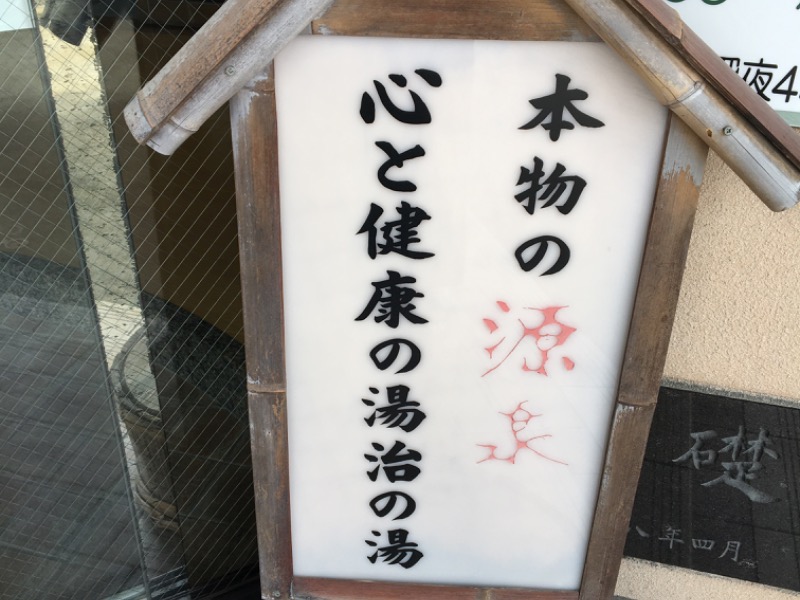 本物の源泉
心と健康の湯治の湯
夜4
礎
八年四月